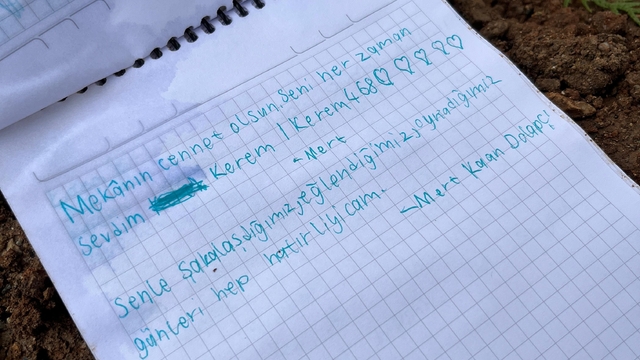 Mekânın cennet olsun, seni her zaman
Sevdim Kerem 1 Kerem468♡ ♡ ♡ ♡ ♡
-Mert
Senle şakalaşdığımız, eğlendiğimiz, oynadığımız
günleri hep hatırlıyıcam.
-Mert Kaan Dalapçı